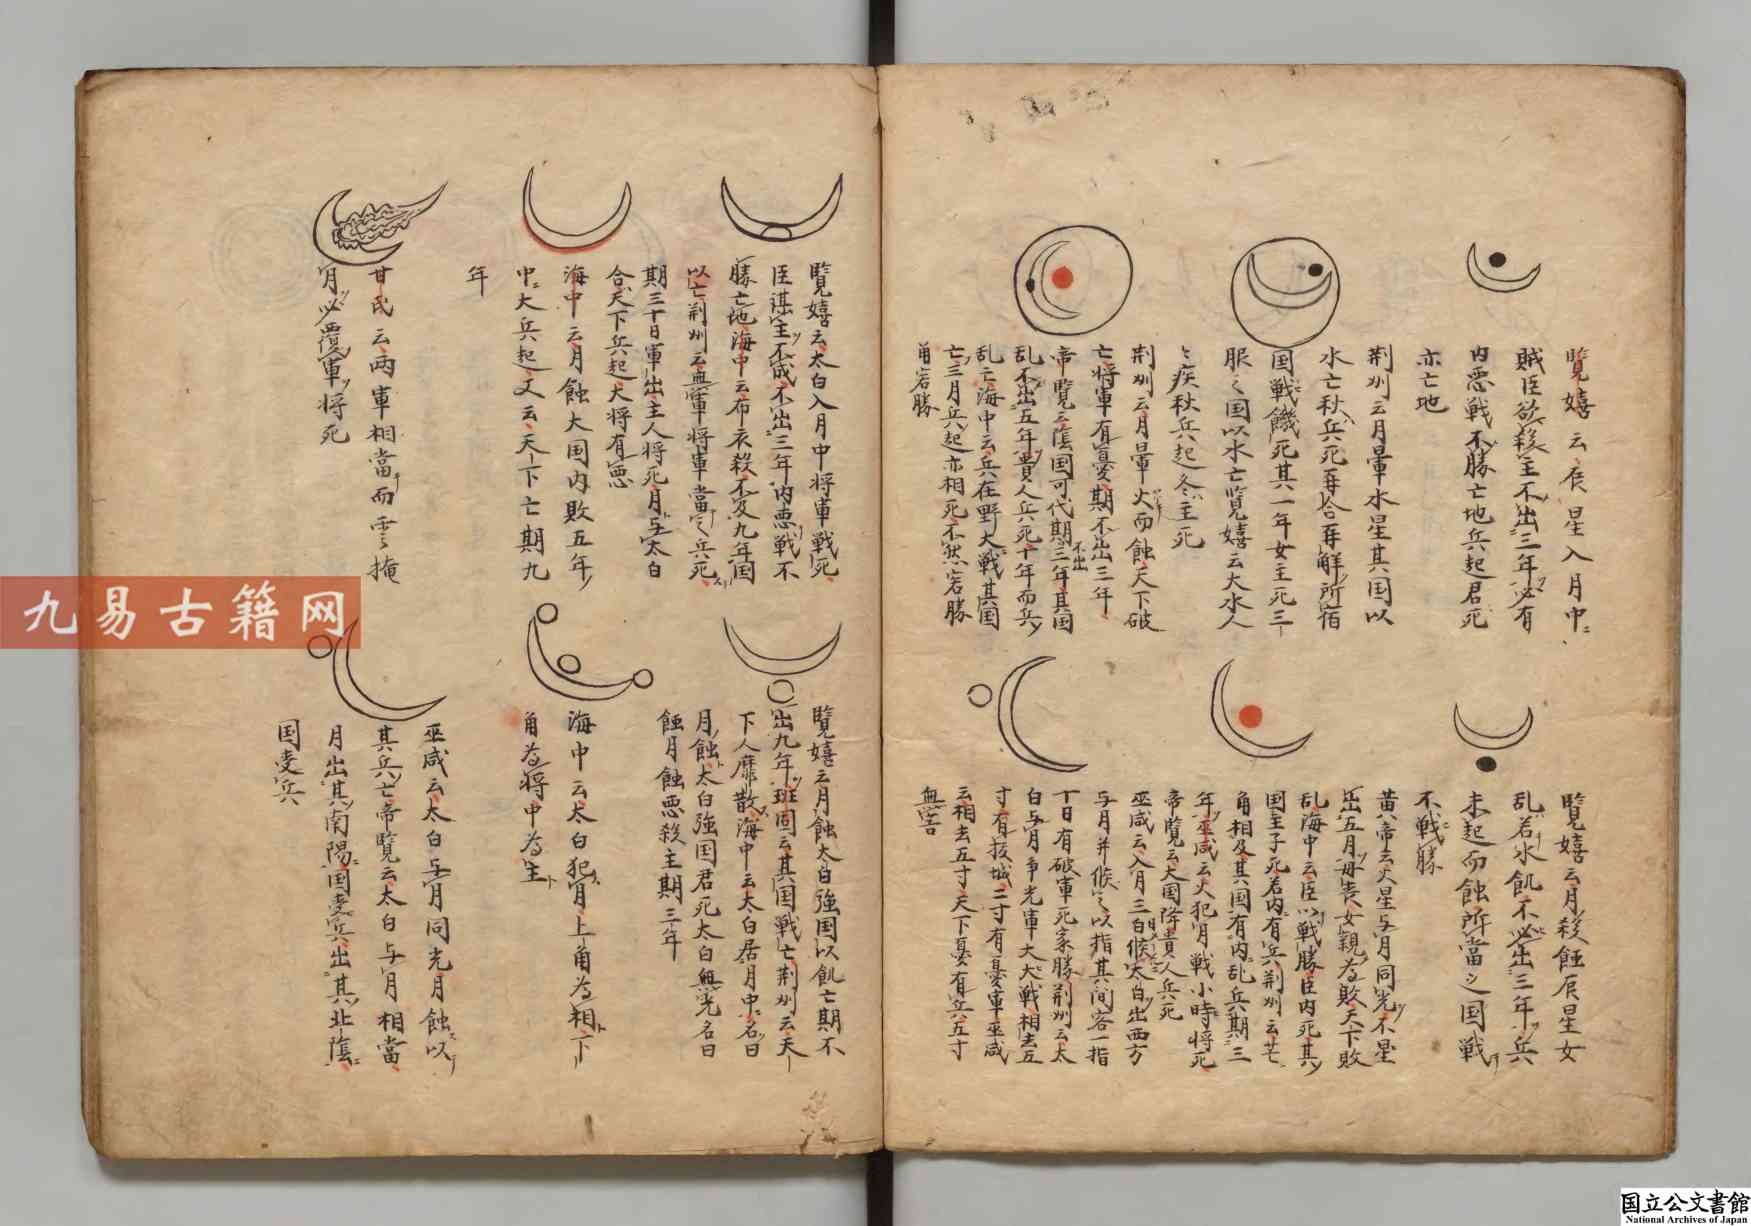 覧嬉云辰星入月中
賊臣欲殺主不出三年必有
内悪戦不勝亡地兵起君死
亦亡地
荆州云月暈水星其国以
水亡秋兵死再合再解所宿
国戦饑死其一年女主死三
服之国以水亡覧嬉云大水人
疾秋兵起冬主死
荆州云月暈火而蝕天下破
亡将軍有憂期不出三年
帝覧云陰国可代期不出三年其国
乱不出五年貴人兵死十年而兵
乱亡海中云兵在野大戦其国
亡三月兵起亦相死不然客勝
角客勝
覧嬉云月殺蝕辰星女
乱若水飢不必出三年兵
未起而蝕所當之国戦
不戦勝
黄帝云火星与月同光不星
出五月毋喪女親為敗天下敗
乱海中云臣以戦勝臣内死其
国主子死若内有兵荆州云芒
角相及其国有内乱兵期三
年巫咸云火犯月戦小時将死
帝覧云大国降貴人兵死
巫咸云入月三日候太白出西方
与月并候之以指其間容一指
十日有破軍死家勝荆州云太
白与月争光軍大大戦相去五
寸有抜城二寸有憂軍巫咸
云相去五寸天下憂有兵五寸
無害
覧嬉云太白入月中将軍戦死
臣謀主不成不出三年内悪戦不
勝亡地海中云布衣殺不変九年国
以亡荆州云無軍将軍當之兵死
期三十日軍出主人将死月与太白
合天下兵起大将有
海中云月蝕大国内敗五年
中大兵起又云天下亡期九
年
甘氏云両軍相當而雲掩
月必覆軍将死
覧嬉云月蝕太白強国以飢亡期不
出九年班固云其国戦亡荆州云天
下人靡散海中云太白居月中名曰
月蝕太白強国君死太白無光名曰
蝕月蝕悪殺主期三年
海中云太白犯月上角為相下
角為将中為主
巫咸云太白与月同光月蝕以
其兵亡帝覧云太白与月相當
月出其南陽国受兵出其北陰
国受兵
九易古籍网
国立公文書館
National Archives of Japan